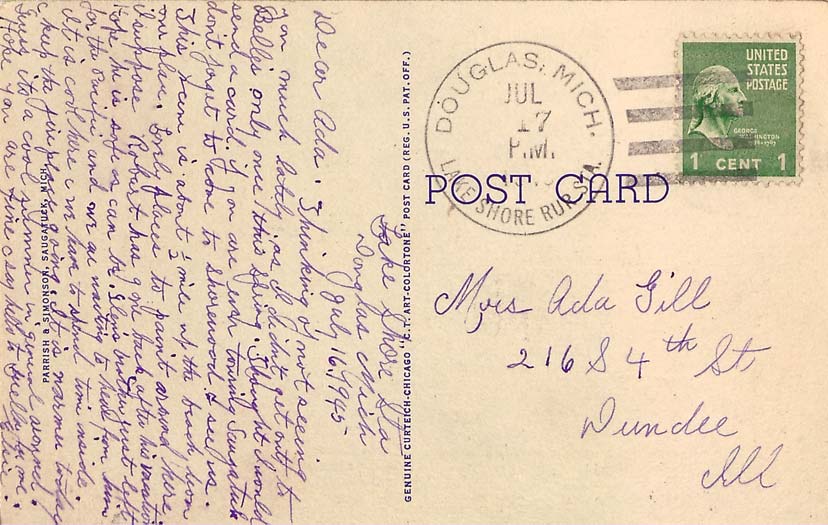 Lake Shore Sta
Douglas Mich
July 16, 1945
Dear Ada: Thinking of not seeing
you much lately as I didn't get out to
Bella's only once this spring. Thought I would
send a card. If you are ever touring Saugatuck
don't forget to come to Shorewood & see us.
This scene is about ½ mile up the beach from
our place. Lovely places to paint around here.
I suppose Robert has gone back after his vacation
hope he is safe as can be. Glens brother just left
for the Pacific and we are waiting to hear from him
It is cool here & we have to spend time inside
& keep the fireplace going. It is warmer today
Guess it's a cool summer in general around
Hope you are fine & say hello to Bella for me.
Elsie.
PARRISH & SIMONSON, SAUGATUCK, MICH.
GENUINE CURTEICH-CHICAGO "C.T. ART-COLORTONE" POST CARD (REG. U.S. PAT. OFF.)
DOUGLAS, MICH.
JUL
17
P.M.
LAKE SHORE RUR. STA.
UNITED
STATES
POSTAGE
GEORGE
WASHINGTON
1 CENT 1
POST CARD
Mrs Ada Gill
216 S 4th St
Dundee
Ill